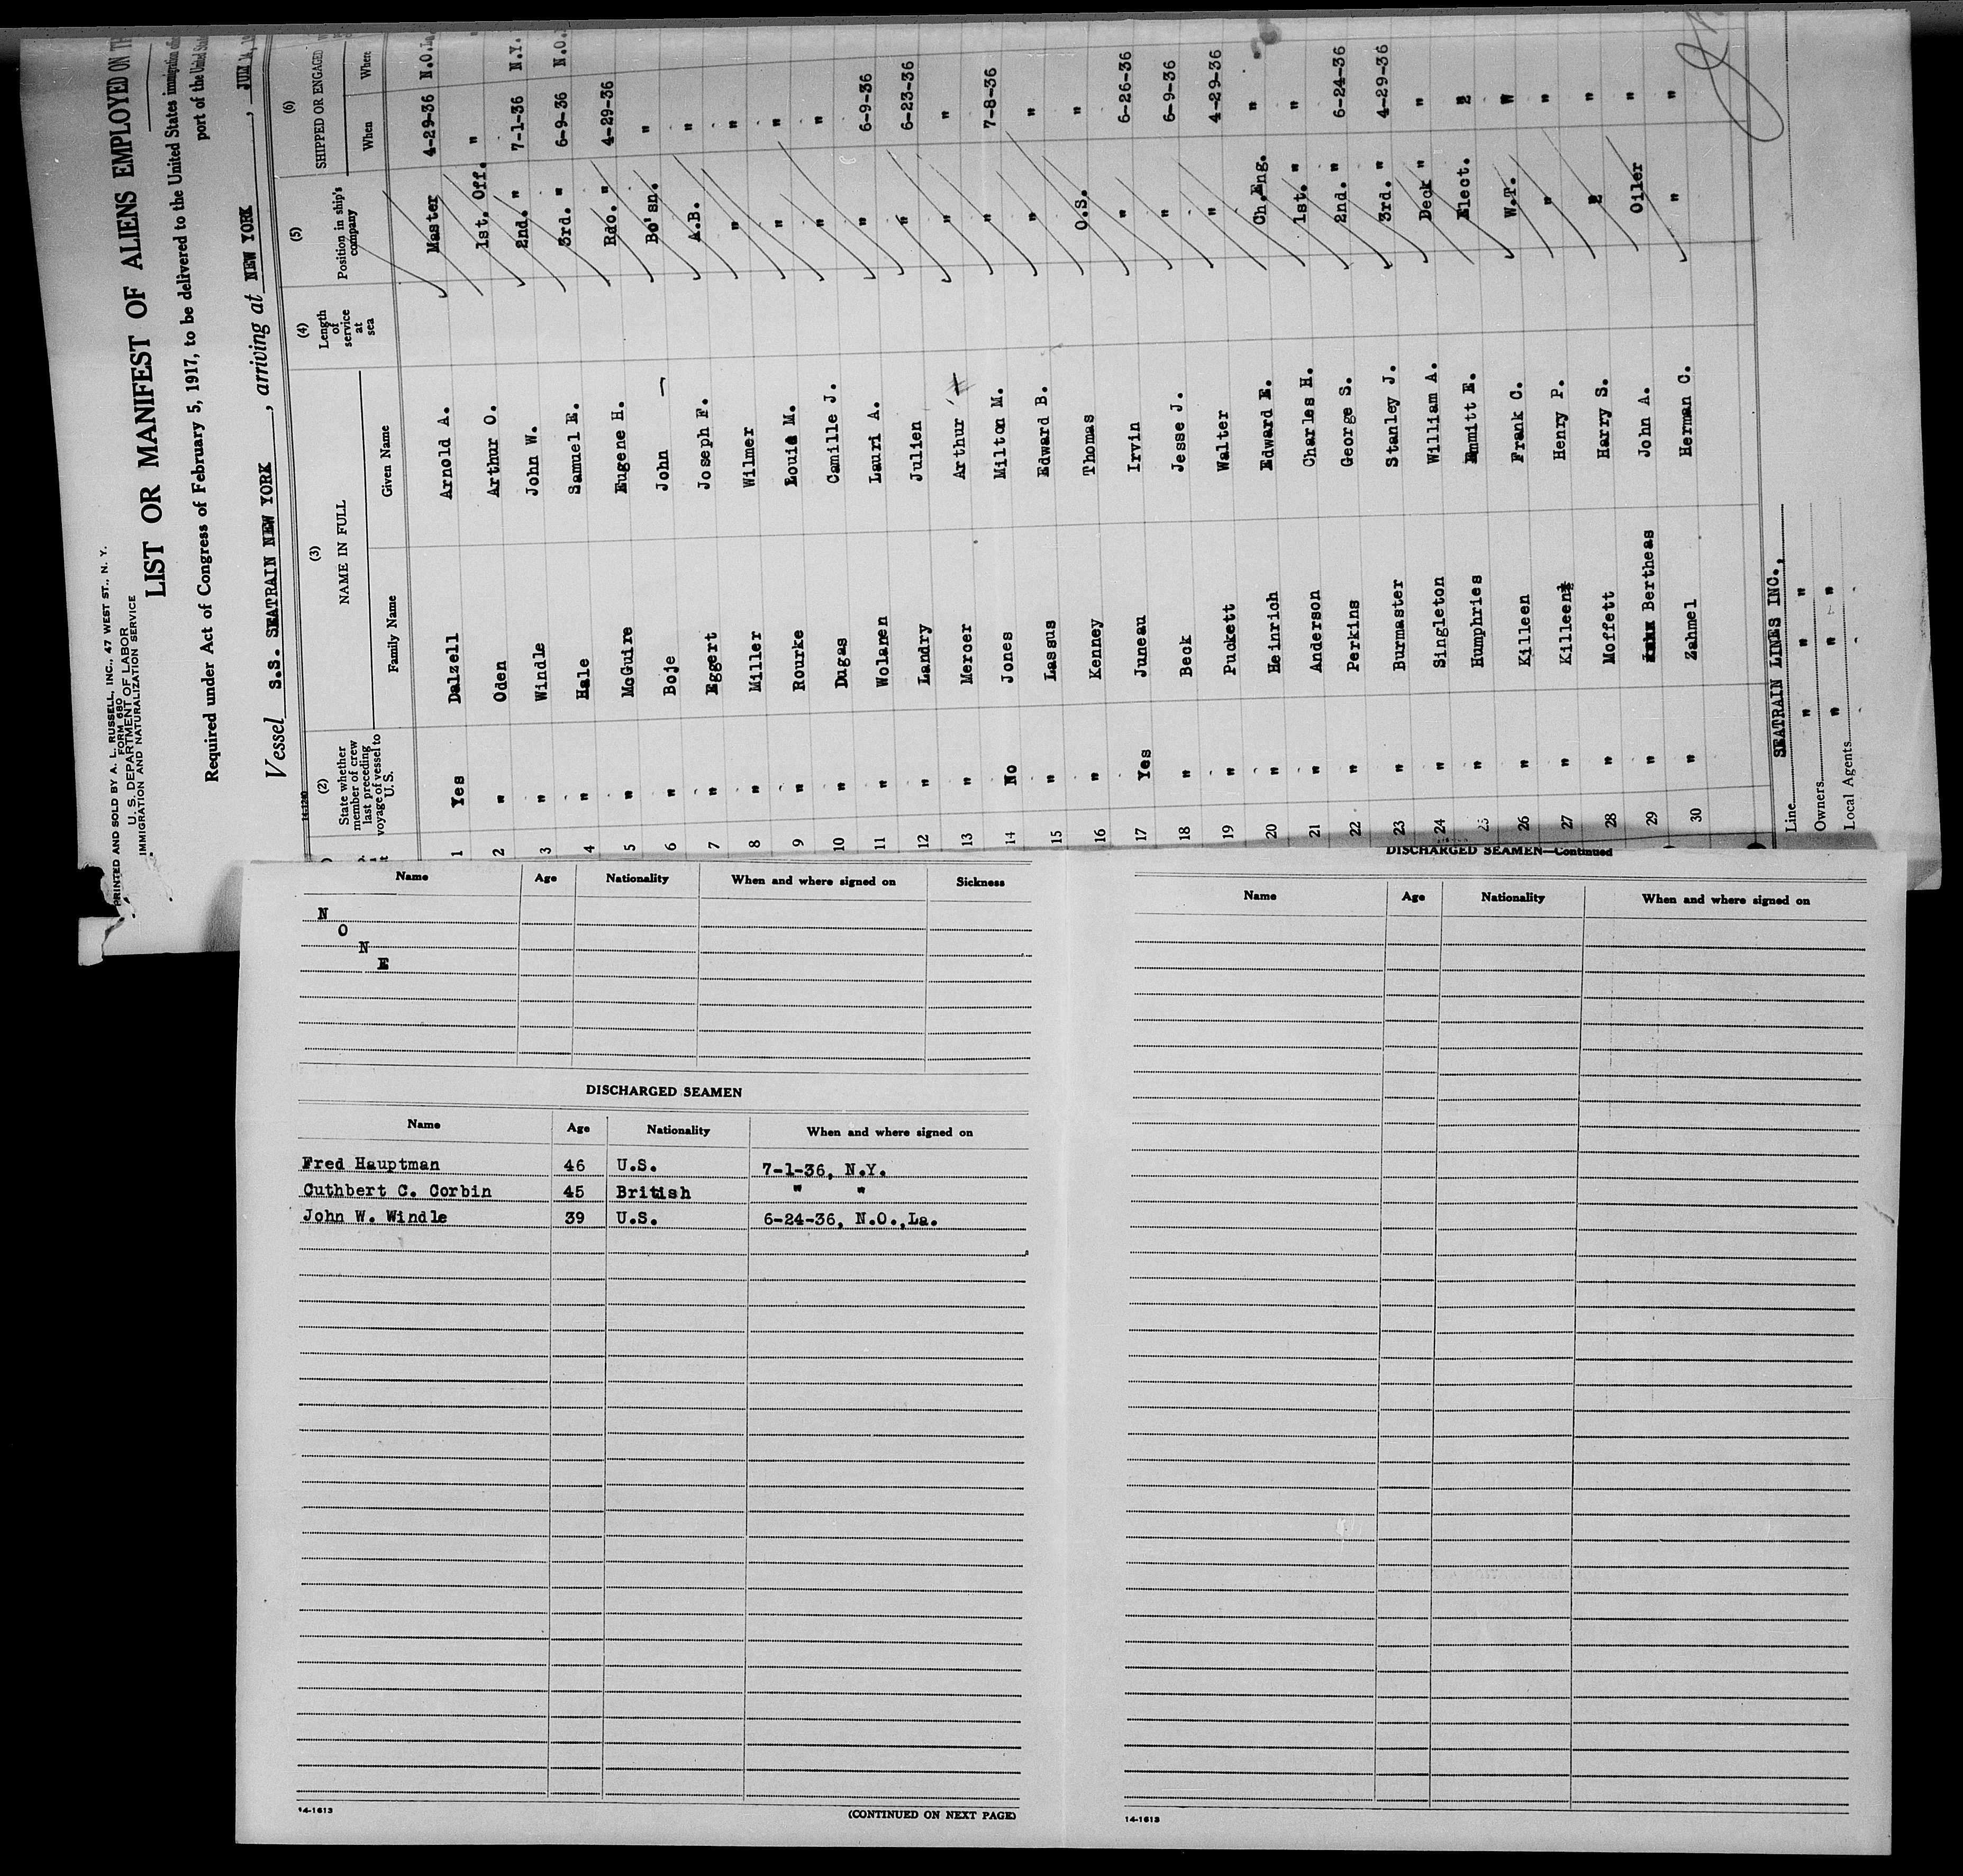 PRINTED AND SOLD BY A. L. RUSSELL, INC., 47 WEST ST., N. Y.
FORM 680
U. S. DEPARTMENT OF LABOR
IMMIGRATION AND NATURALIZATION SERVICE
LIST OR MANIFEST OF ALIENS EMPLOYED ON
Required under Act of Congress of February 5, 1917, to be delivered to the United States immigration
port of the United
Vessel S.S. SEATRAIN NEW YORK, arriving at NEW YORK,
14-1240
(2) (3) (4) (5) (6)
State whether member of crew last preceding voyage of vessel to U.S. NAME IN FULL Length of service at sea Position in ship's company SHIPPED OR ENGAGED
Family Name Given Name When Where
1 Yes Dalzell Arnold A. Master 4-29-36 N.O.La.
2 " Oden Arthur O. 1st. Off. " "
3 " Windle John W. 2nd. " 7-1-36 N.Y.
4 " Hale Samuel E. 3rd. " 6-9-36 N.O.
5 " McGuire Eugene H. Rdo. " 4-29-36
6 " Boje John Bo'sn. "
7 " Eggert Joseph F. A.B. "
8 " Miller Wilmer " "
9 " Rourke Louis M. " "
10 " Dugas Camille J. " "
11 " Wolanen Lauri A. " 6-9-36
12 " Landry Julien " 6-23-36
13 " Mercer Arthur " "
14 No Jones Milton M. " 7-8-36
15 " Lassus Edward B. " "
16 " Kenney Thomas O.S. "
17 Yes Juneau Irvin " 6-26-36
18 " Beck Jesse J. " 6-9-36
19 " Puckett Walter " 4-29-36
20 " Heinrich Edward E. Ch.Eng. "
21 " Anderson Charles H. 1st. " "
22 " Perkins George S. 2nd. " 6-24-36
23 " Burmaster Stanley J. 3rd. " 4-29-36
24 " Singleton William A. Deck " "
25 " Humphries Emmitt E. Elect. "
26 " Killeen Frank C. W.T. "
27 " Killeen Henry P. " "
28 " Moffett Harry S. " "
29 " Bertheas John A. Oiler "
30 " Zahmel Herman C. " "
Line SEATRAIN LINES INC.,
Owners " " "
Local Agents " " "
Name Age Nationality When and where signed on Sickness
N
O
N
E
DISCHARGED SEAMEN
Name Age Nationality When and where signed on
Fred Hauptman 46 U.S. 7-1-36, N.Y.
Cuthbert C. Corbin 45 British " "
John W. Windle 39 U.S. 6-24-36, N.O.,La.
14-1613
(CONTINUED ON NEXT PAGE)
DISCHARGED SEAMEN—Continued
Name Age Nationality When and where signed on
14-1613